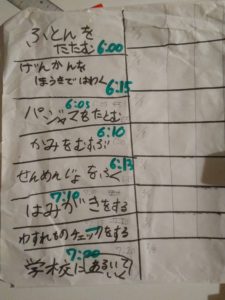 ふとんを
たたむ 6:00
げんかんを
ほうきではわく 6:15
6:03
パジャマをたとむ
6:10
かみをむすぶ
6:13
せんめんじょをふく
7:10
はみがきをする
わすれものチェックをする
7:20
学校にあるいて
いく